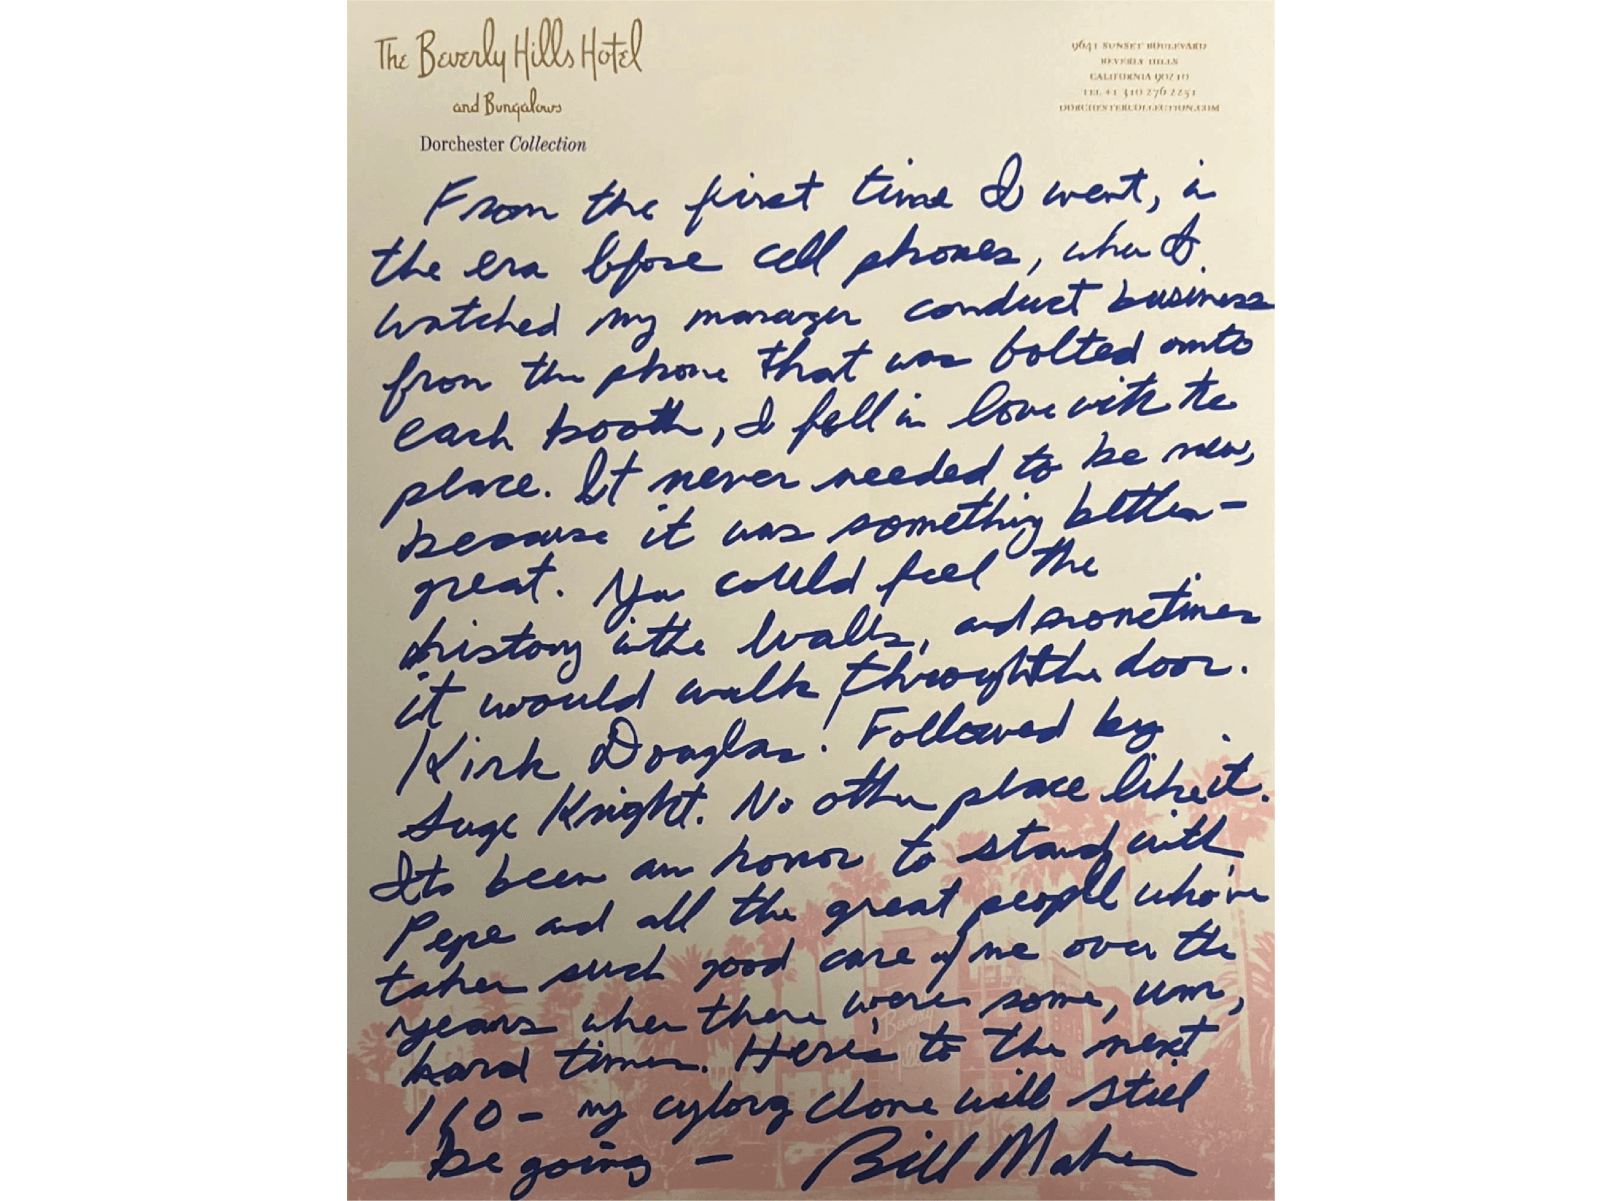 The Beverly Hills Hotel
and Bungalows
Dorchester Collection
9641 SUNSET BOULEVARD
BEVERLY HILLS
CALIFORNIA 90210
TEL +1 310 276 2251
DORCHESTERCOLLECTION.COM
From the first time I went, in
the era before cell phones, when I
watched my manager conduct business
from the phone that was bolted onto
each booth, I fell in love with the
place. It never needed to be new,
because it was something better –
great. You could feel the
history in the walls, and sometimes
it would walk through the door.
Kirk Douglas! Followed by
Suge Knight. No other place like it.
It's been an honor to stand with
Pepe and all the great people who've
taken such good care of me over the
years when there were some, um,
hard times. Here's to the next
110 – my cyborg clone will still
be going –
Bill Maher
Beverly
Hills